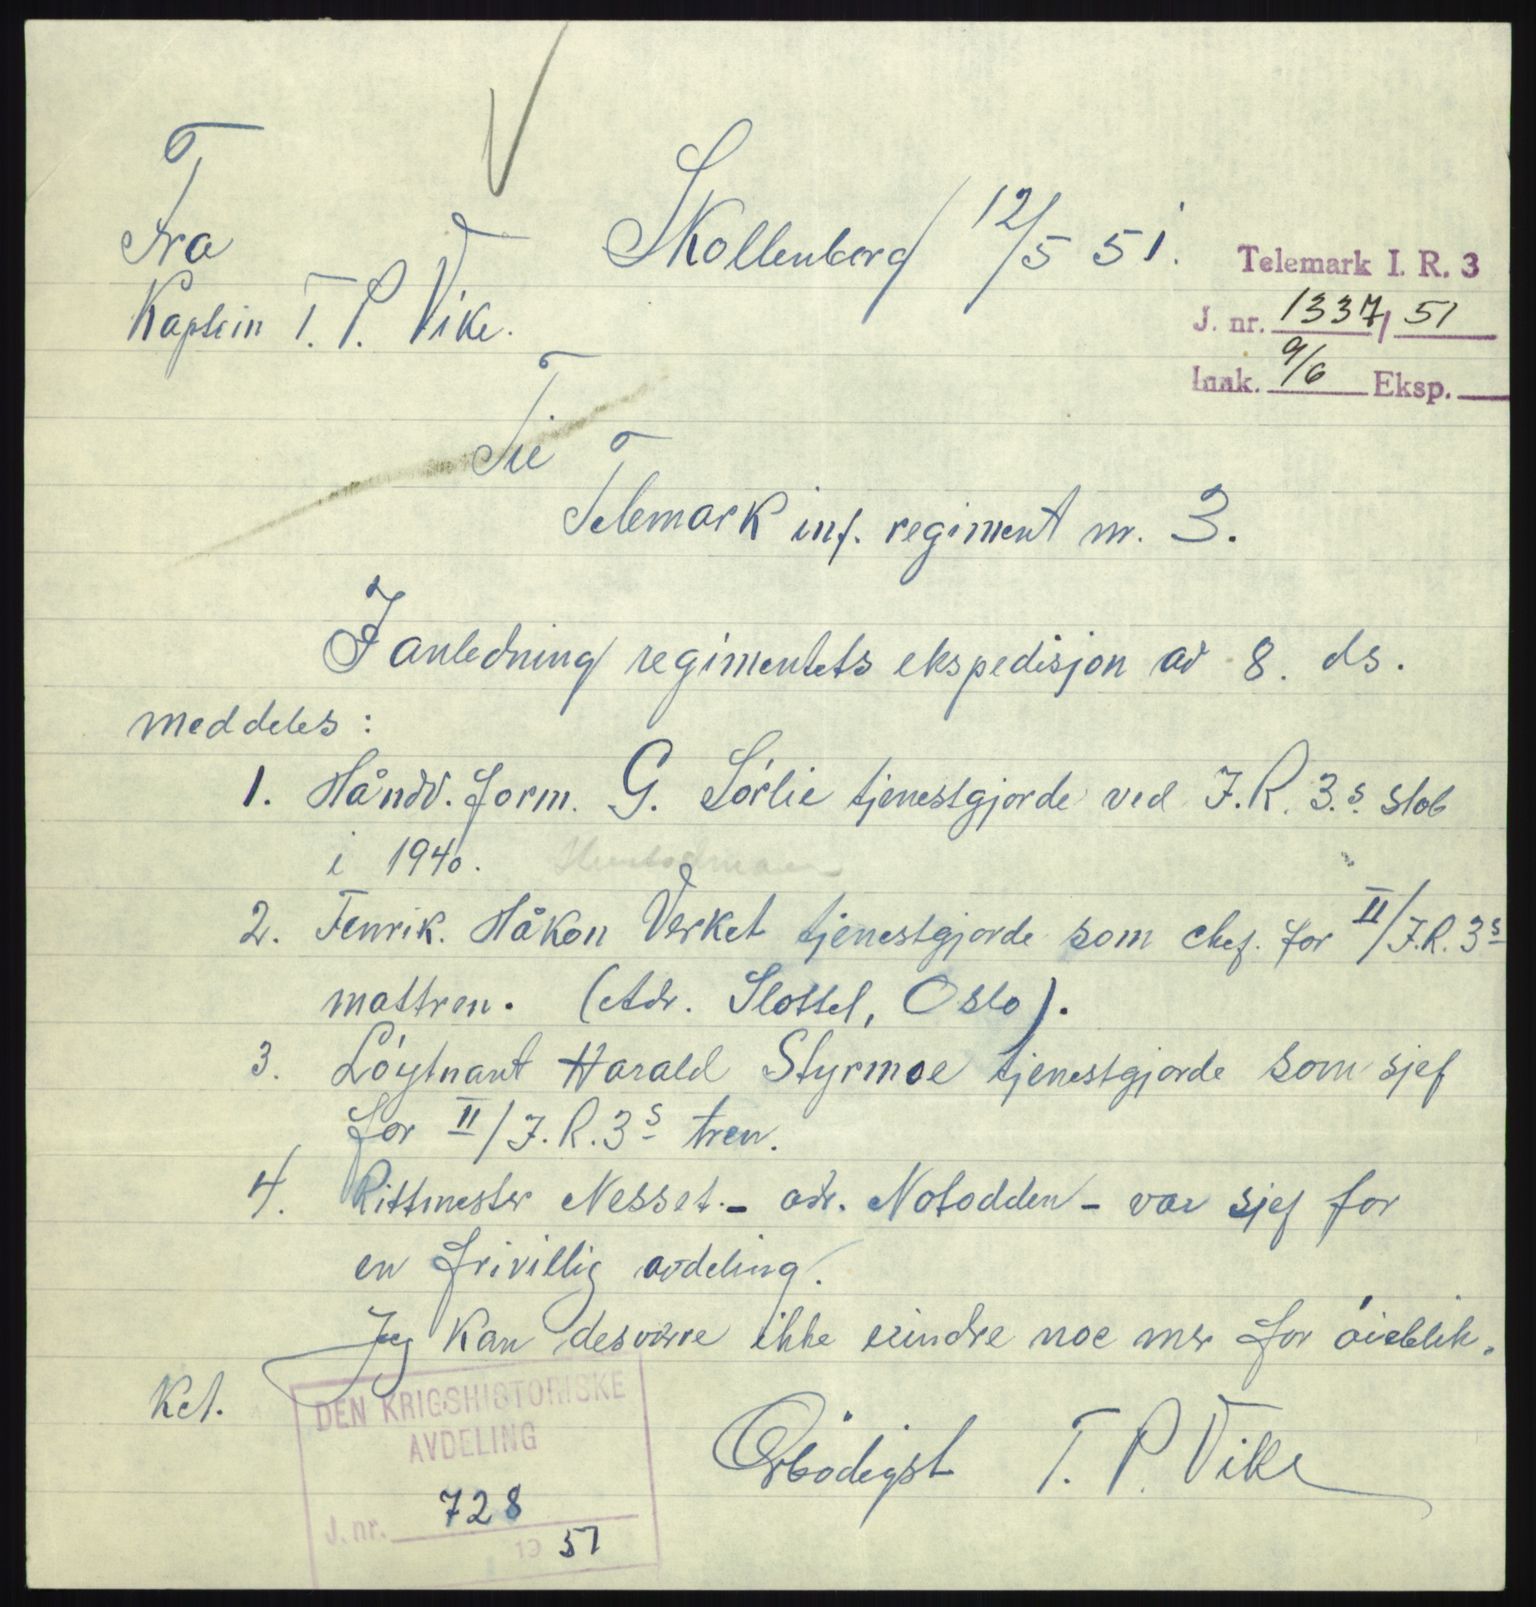 Fra
Kaptein T. P. Vike.
Skollenborg 12/5 51.
Telemark I. R. 3
J. nr. 1337/ 51
Innk. 9/6 Eksp.
Til
Telemark inf. regiment nr. 3.
I anledning regimentets ekspedisjon av 8. ds.
meddeles:
1. Håndv. form. G. Sörlie tjenestgjorde ved I.R. 3.s stab
i 1940.
2. Fenrik. Håkon Verket tjenestgjorde som chef. for II/I.R. 3s
mattren. (Adr. Slottet, Oslo).
3. Löytnant Harald Styrmoe tjenestgjorde som sjef
for II/I.R.3s tren.
4. Rittmester Nesset. - adr. Notodden - var sjef for
en frivillig avdeling.
Jeg kan desværre ikke erindre noe mer for öieblik.
ket.
Ærbödigst T. P. Vike
DEN KRIGSHISTORISKE
AVDELING
J. nr. 728
19 51